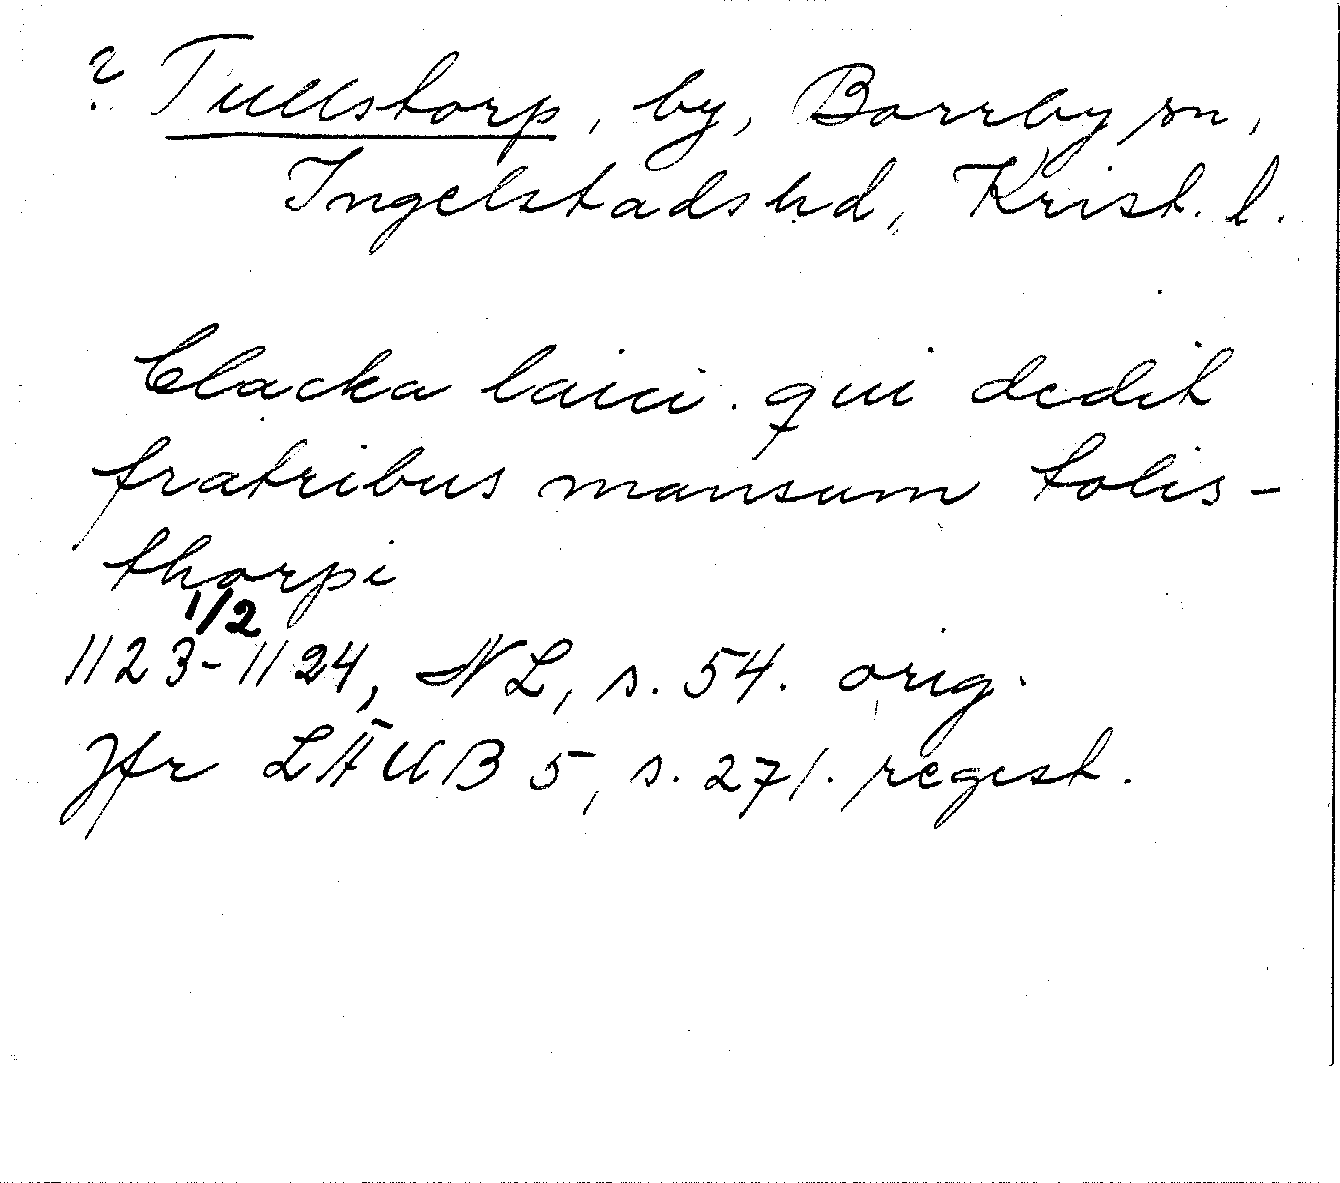 ? Tullstorp, by, Borrby sn,
Ingelstads hd, Krist. l.
Clacka laici. qui dedit
fratribus mansum tolis-
thorpi
1/2
1123-1124, NL, s. 54. orig.
Jfr LÄUB 5, s. 271. regist.